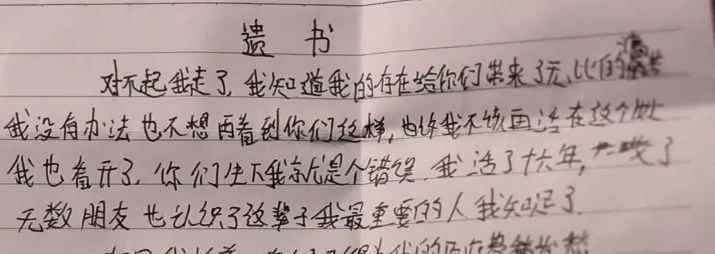 遗书
对不起我走了,我知道我的存在给你们带来了无比的痛苦
我没有办法也不想再看到你们这样,也许我不该再活在这个世
我也看开了,你们生下我就是个错误.我活了十六年,了
无数朋友也认识了这辈子我最重要的人我知足了.